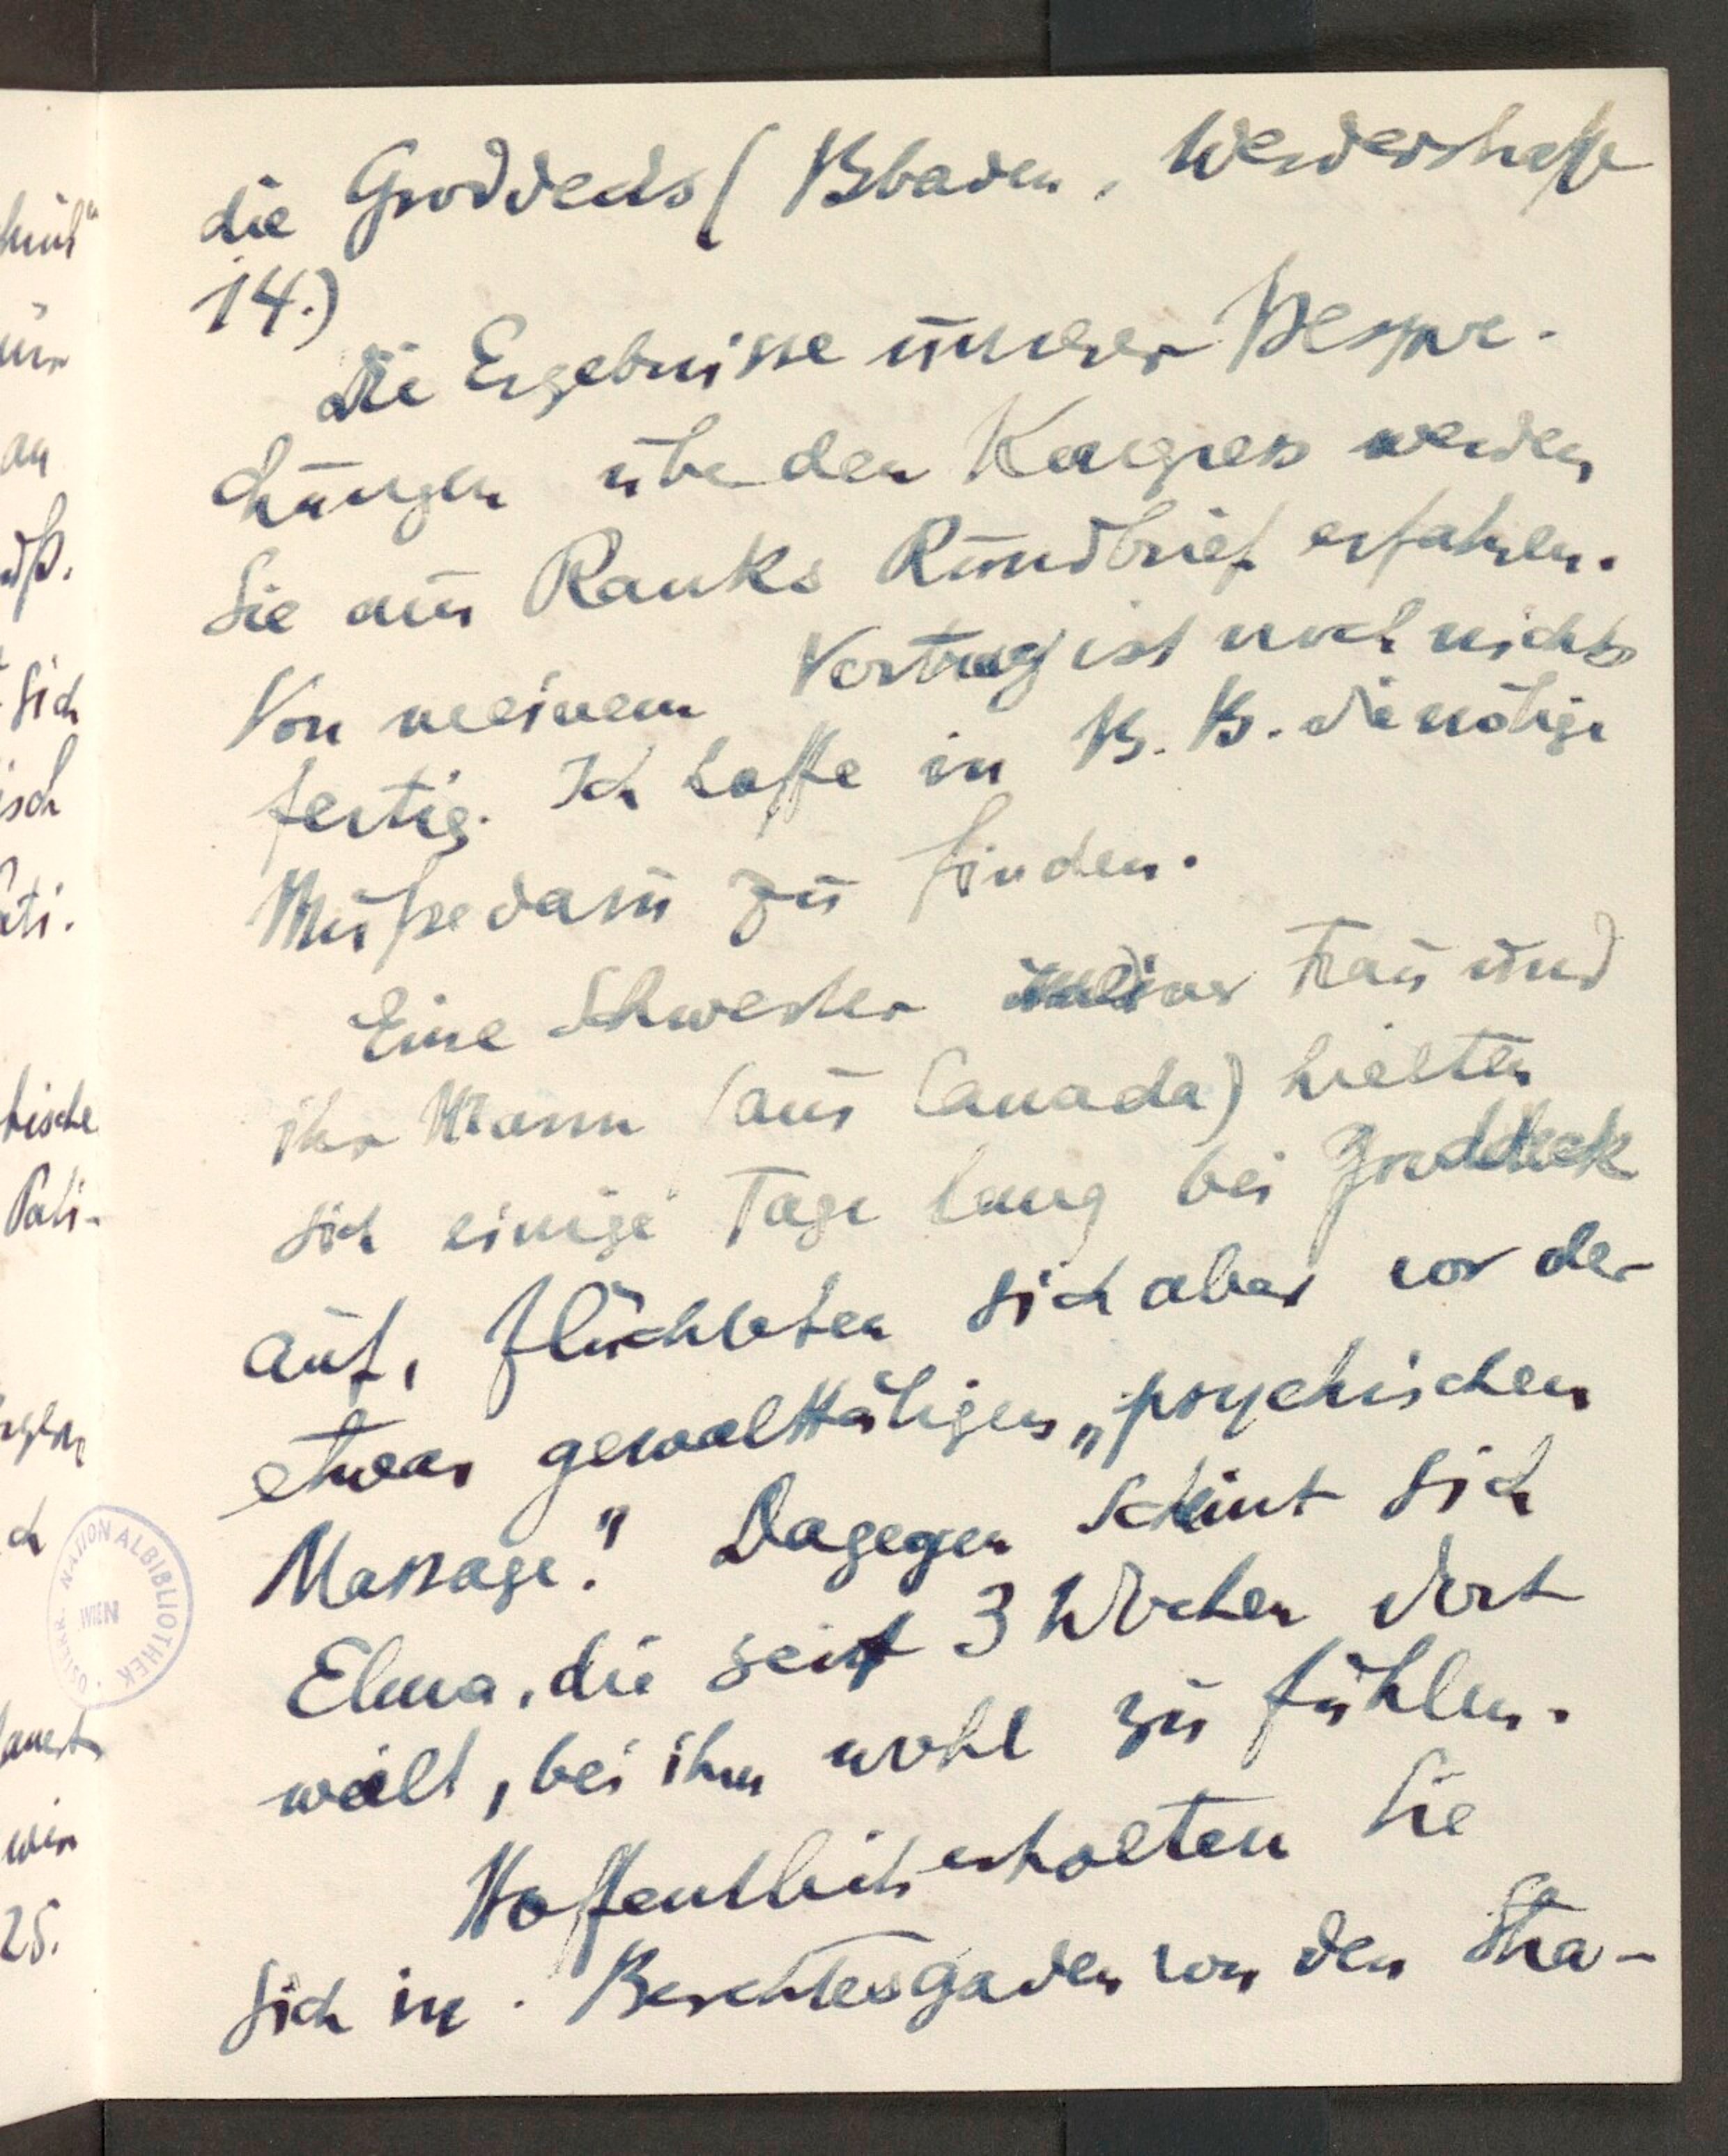 die Groddecks (Bbaden, Werderstraße
14.)
Die Ergebnisse unserer Bespre-
chungen über den Kongress werden
Sie aus Ranks Rundbrief erfahren.
Von meinem Vortrag ist noch nichts
fertig. Ich hoffe in B. B. die nötige
Muße dazu zu finden.
Eine Schwester meiner Frau und
ihr Mann (aus Canada) hielten
sich einige Tage lang bei Groddeck
auf, flüchteten sich aber vor der
etwas gewalttätigen „psychischen
Massage." Dagegen scheint sich
Elma, die seit 3 Wochen dort
weilt, bei ihm wohl zu fühlen.
Hoffentlich erholten Sie
sich in Berchtesgaden von den Stra-
ÖSTERR. NATIONALBIBLIOTHEK
WIEN
sich
isch
tische
Pati-
25.